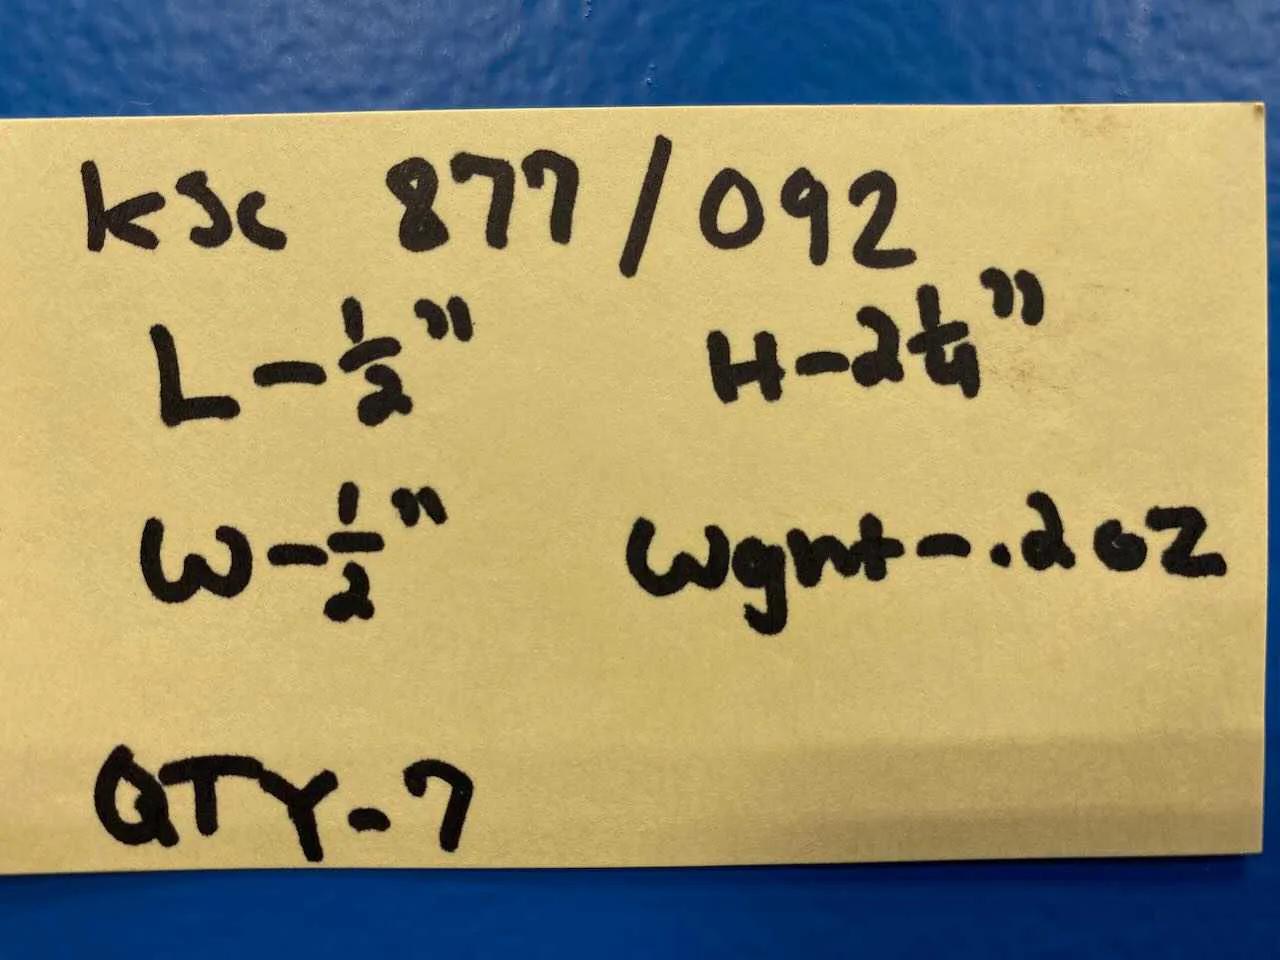 KSC 877/092
L-½" H-2¼"
W-½" Wght-.2oz
QTY-7